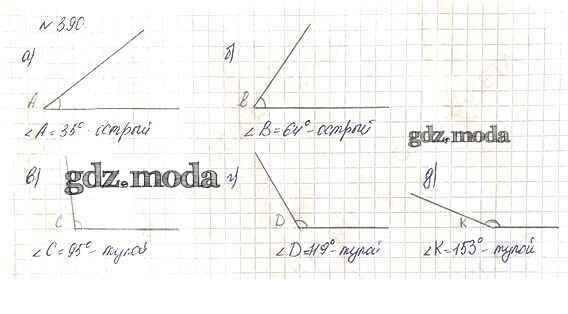 № 390
а)
A
∠A = 35° острый
б)
B
∠B = 64° - острый
gdz.moda
в)
gdz.moda
C
∠C = 95° - тупой
г)
D
∠D = 119° - тупой
д)
K
∠K = 153° - тупой